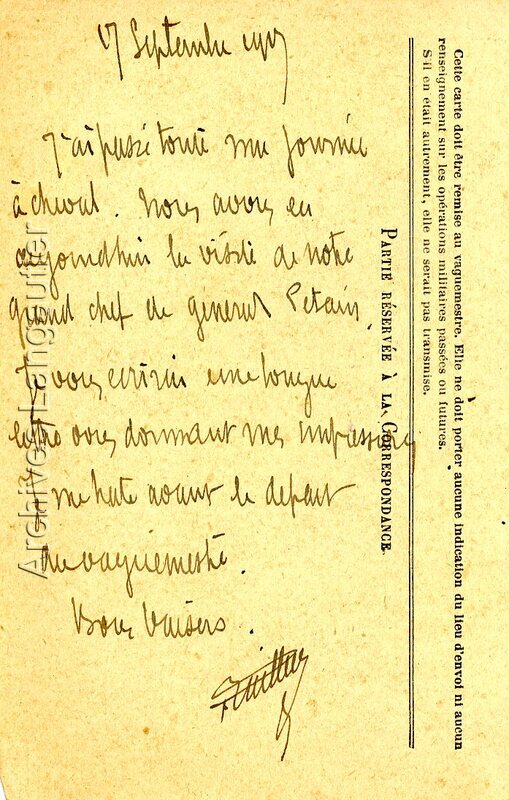 17 Septembre 1917
J'ai passé toute ma journée
à cheval. Nous avons eu
aujourdhui la visite de notre
grand chef le general Petain.
vous ecrirai une longue
lettre vous donnant mes impressions
me hate avant le depart
du vaguemestre.
Bons baisers.
PARTIE RÉSERVÉE À LA CORRESPONDANCE
Cette carte doit être remise au vaguemestre. Elle ne doit porter aucune indication du lieu d'envoi ni aucun
renseignement sur les opérations militaires passées ou futures.
S'il en était autrement, elle ne serait pas transmise.
Archives Languillier